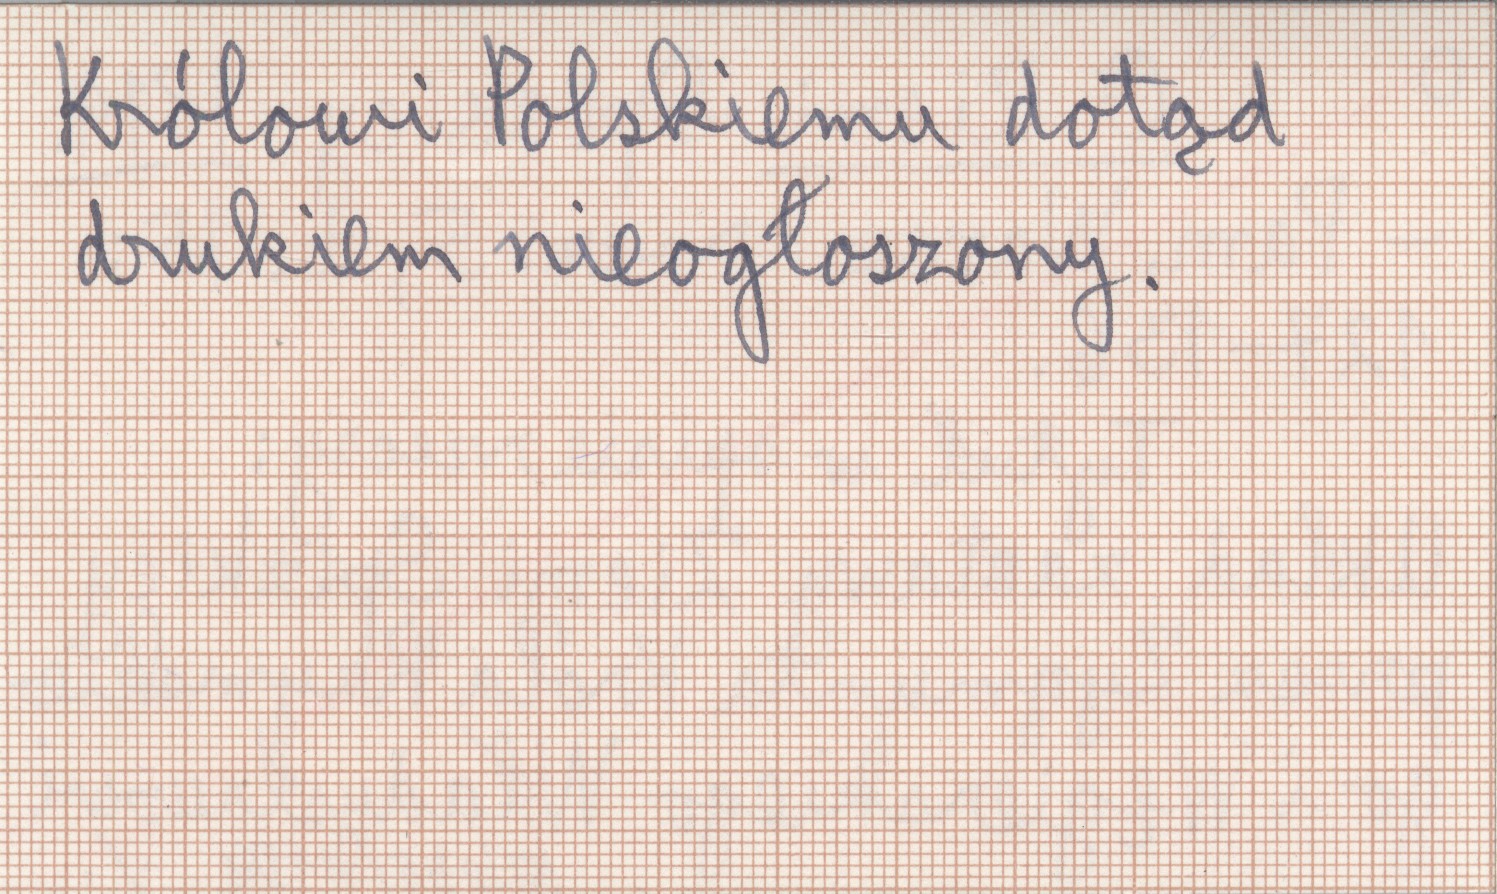 Królowi Polskiemu dotąd
drukiem nieogłoszony.